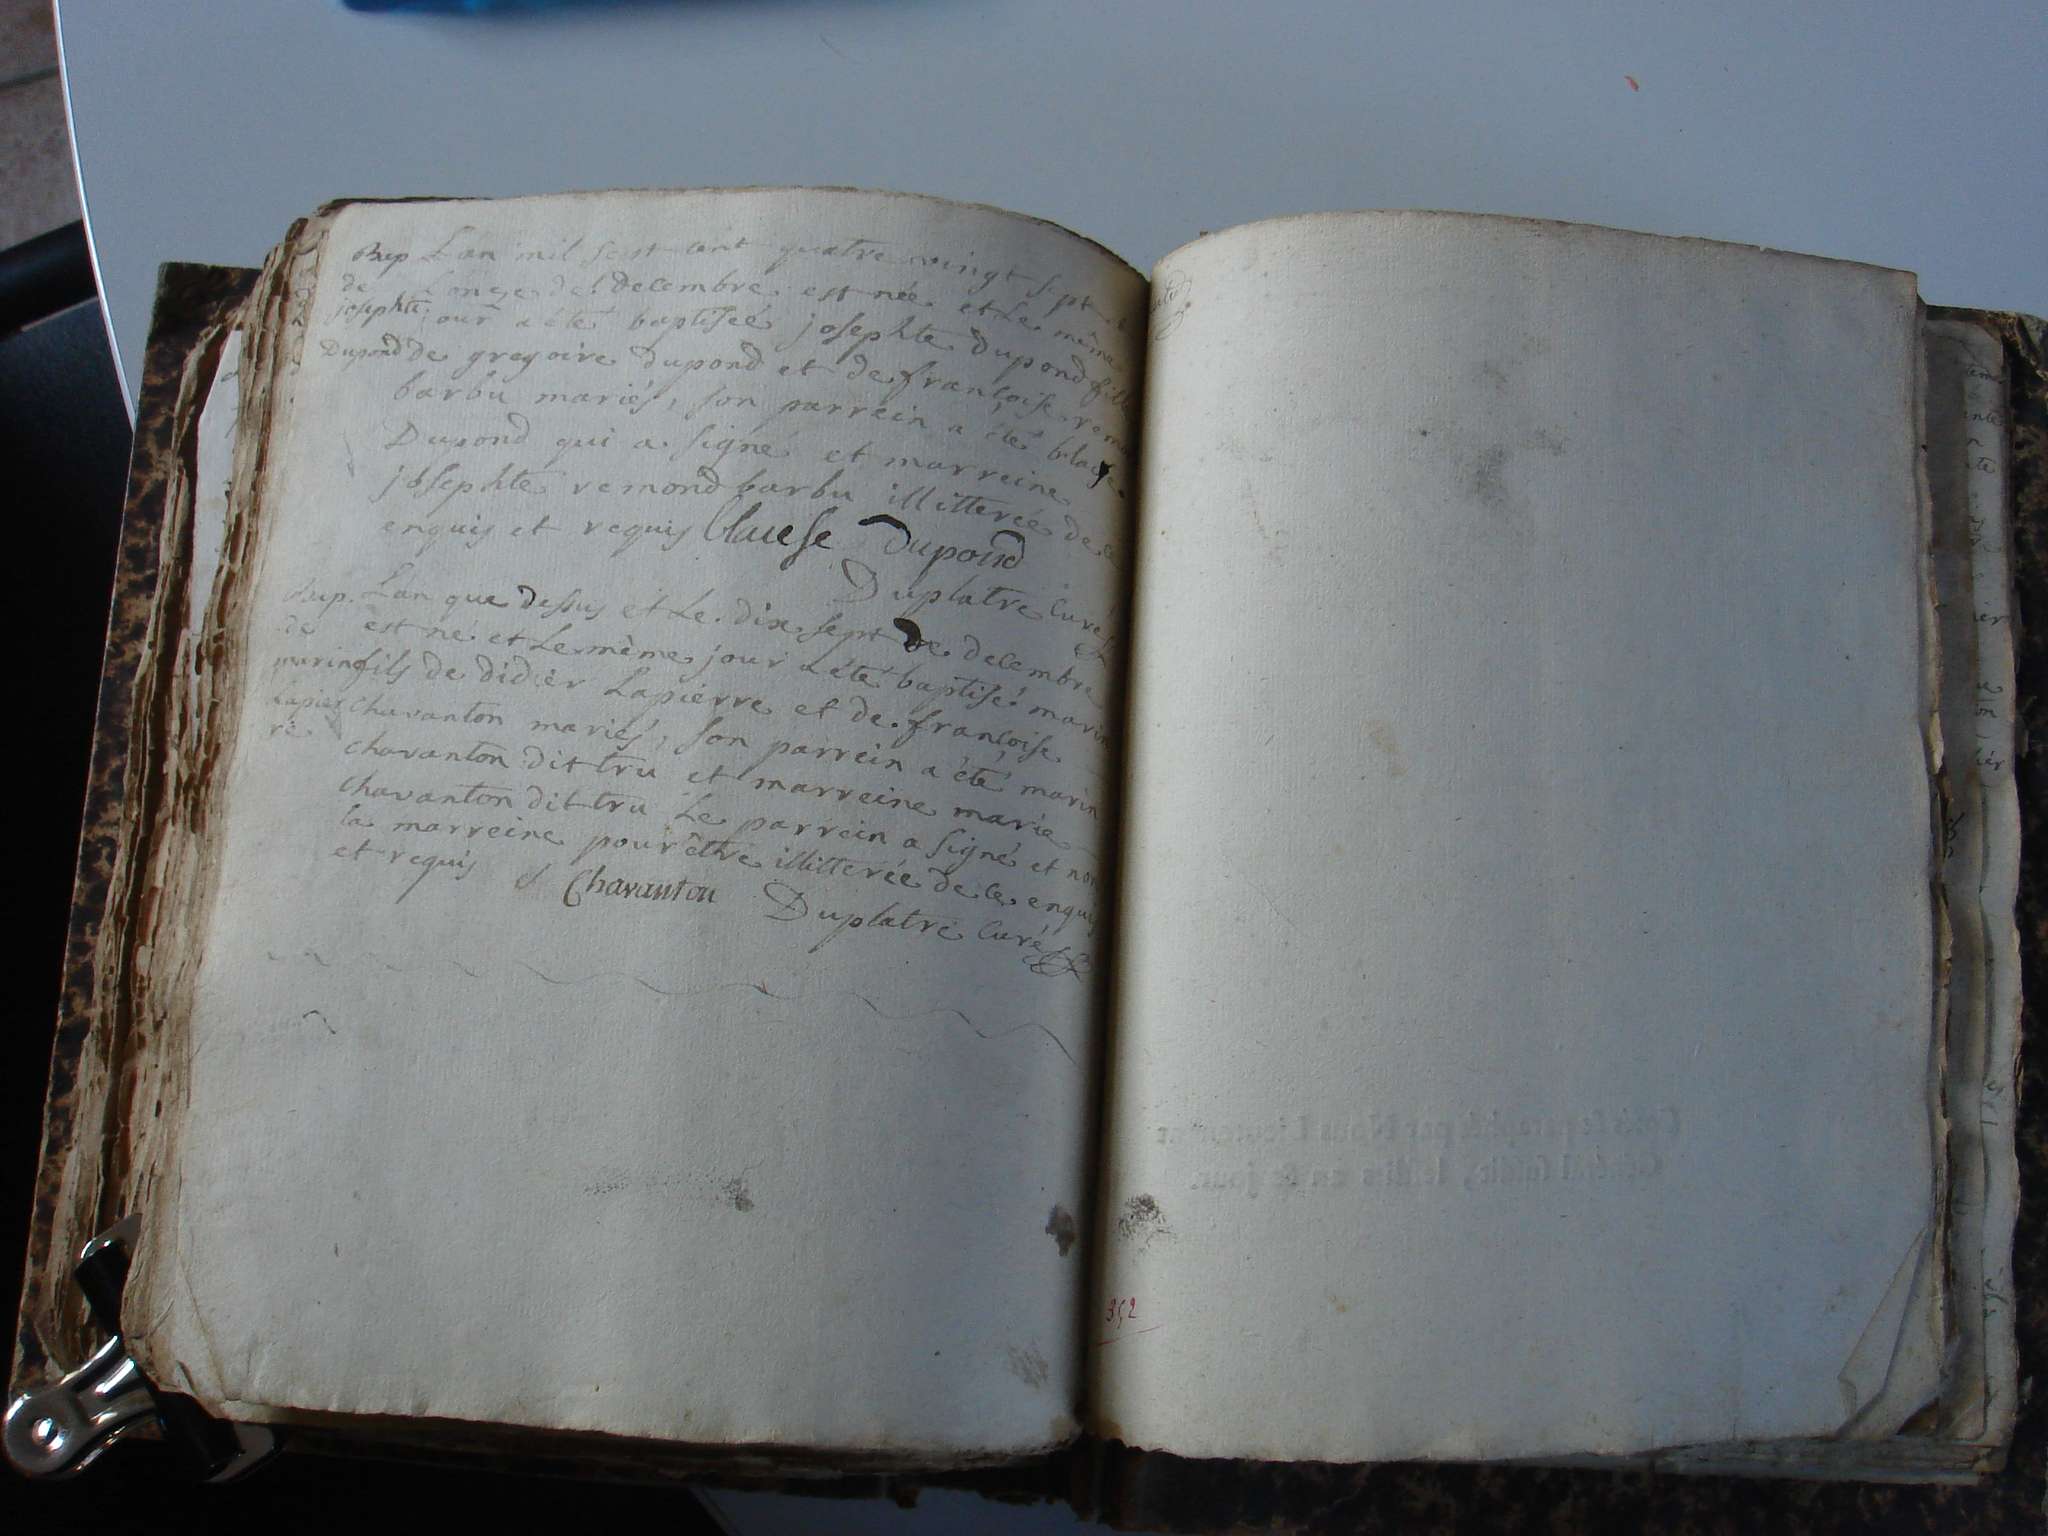 Bap Lan mil sept cent quatre vingt sept
de Lonze de decembre est née et Le même
josephte jour a été baptiseé josephte Dupond fille
Dupond de gregoire Dupond et de françoise remon
barbu mariés, son parrein a été blaise
Dupond qui a signé et marreine
josephte remond barbu illitterée de ce
enquis et requis blaiese Dupond
Duplatre Curé
Bap. Lan que dessus et Le dix sept de decembre
de est né et Le même jour a été baptisé marin
marin fils de didier Lapierre et de françoise
Lapier chavanton mariés, son parrein a été marin
re chavanton dit tru et marreine marie
chavanton dit tru Le parrein a signé et non
la marreine pour être illitterée de ce enquis
et requis Chavanton Duplatre Curé
352